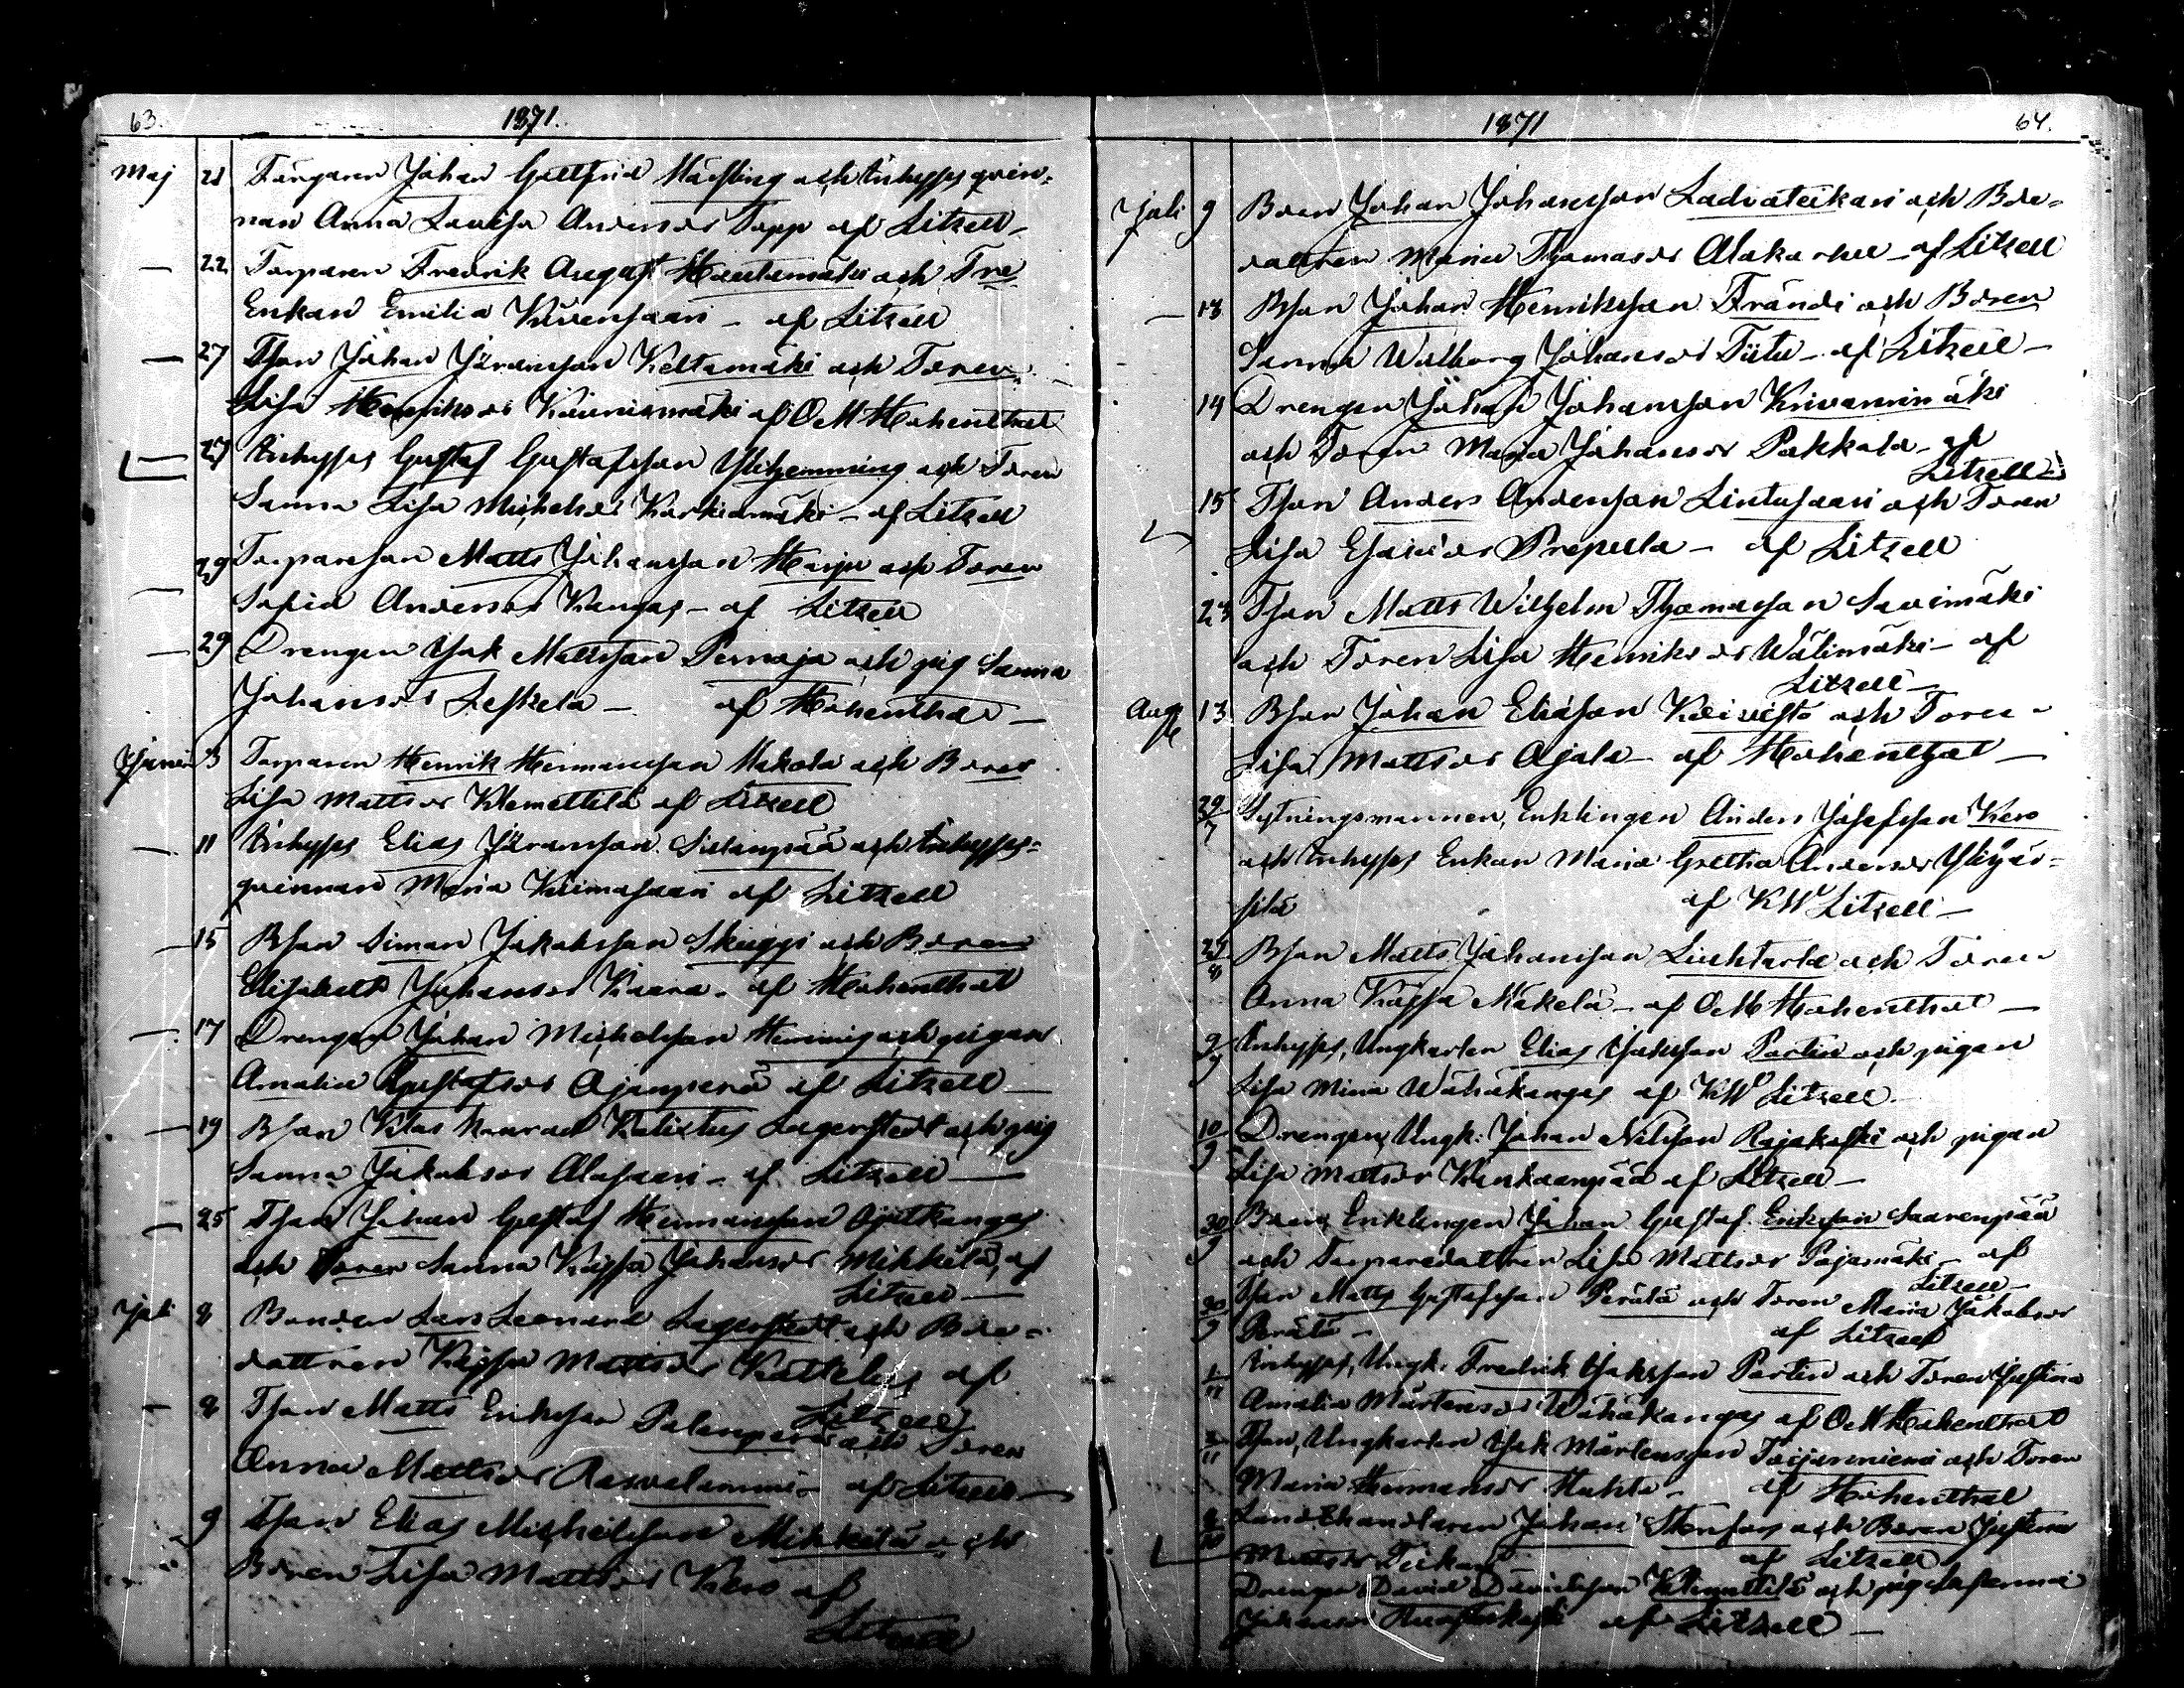 63. 1871.
Maj 21 Färgaren Johan Gottfrid Häfling och Inhysesqvin-
nan Anna Lovisa Andersdr Topp af Litzell
— 22 Torparen Fredrik August Hautamäki och Tre
Enkan Emilia Kuivensaari – af Litzell
— 27 Tson Johan Göransson Keltamäki och Toren
Lisa Henriksdr Kauniismäki af OeM Hohenthal
27 Inhyses Gustaf Gustafsson Ylihemming och Toren
Sanna Lisa Michelsdr Karkiamäki – af Litzell
— 29 Torparesson Matts Johansson Harju och Toren
Sofia Andersdr Kangas – af Litzell
— 29 Drengen Isak Mattsson Pernaja och pig Sanna
Johansdr Leskelä – af Hohenthal –
Junii 3 Torparen Henrik Hermansson Makola och Boren
Lisa Mattsdr Klemettilä af Litzell
— 11 Inhyses Elias Göransson Sillanpää och Inhyses-
qvinnan Maria Kiimasaari af Litzell
— 15 Bson Simon Jakobsson Skuggi och Boren
Elisabeth Johansdr Kaara – af Hohenthal
— 17 Drengen Johan Michelsson Hemming och pigan
Amalia Gustafsdr Ojanperä af Litzell –
— 19 Bson Klas Konrad Kalixtus Lagerstedt och pig
Sanna Jakobsdr Alasaari – af Litzell —
— 25 Tson Johan Gustaf Hermansson Ojutkangas
och Toren Sanna Kajsa Johansdr Mikkilä, af
Litzell —
Juli 2 Bonden Lars Leonard Lagerstedt och Bde-
dottren Kajsa Mattsdr Kattelus af
Litzell
— 2 Tson Matts Eriksson Palonperä och Toren
Anna Mattsdr Rasvalammi – af Litzell —
9 Tson Elias Michelsson Mikkilä och
Boren Lisa Mattsdr Kero af
Litzell
1871 64.
Juli 9 Boren Johan Johansson Ladvateikari och Bde-
dottren Maria Thomasdr Alakarhu – af Litzell
— 13 Bson Johan Henriksson Frändi och Boren
Sanna Walborg Johansdr Tiitu – af Litzell –
14 Drengen Johan Johansson Knivarinmäki
och Toren Maria Johansdr Pakkala – af
Litzell –
15 Tson Anders Andersson Lintusaari och Toren
Lisa Esaiadr Prepula – af Litzell
23 Tson Matts Wilhelm Thomasson Savimäki
och Toren Lisa Henriksdr Wälimäki – af
Litzell –
Aug 13 Bson Johan Eliasson Koivisto och Toren
Lisa Mattsdr Ajala – af Hohenthal –
30/7 Sytningsmannen, Enklingen Anders Josefsson Kero
och Inhyses Enkan Maria Gretha Andersdr Ylijär-
silä af KW Litzell –
27/8 Bson Matts Johansson Luhtala och Toren
Anna Kajsa Mäkelä – af OeM Hohenthal –
9/9 Inhyses, Ungkarlen Elias Isaksson Portin och pigan
Lisa Mina Wähäkangas af KW Litzell –
10/9 Drengen, Ungk: Johan Nilsson Rajakoski och pigan
Lisa Mattsdr Kankaanpää af Litzell –
30/9 Boren, Enklingen Johan Gustaf Eriksson Saarenpää
och Torparedottren Lisa Mattsdr Pajamäki – af
Litzell –
30/9 Tson Matts Gustafsson Perälä och Toren Maria Jakobsdr
Perälä – af Litzell
1/11 Inhyses, Ungk. Fredrik Isaksson Portin och Toren Justina
Amalia Mårtensdr Wähäkangas af OeM Hohenthal
2/11 Tson, Ungkarlen Isak Mårtensson Toijanniemi och Toren
Maria Hermansdr Huhta – af Hohenthal
Landthandlaren Johan Stenfors och Boren Justina
Mattsdr af Litzell
Drengen David Davidsson Klemettilä och pig Susanna
Johansdr af Litzell –